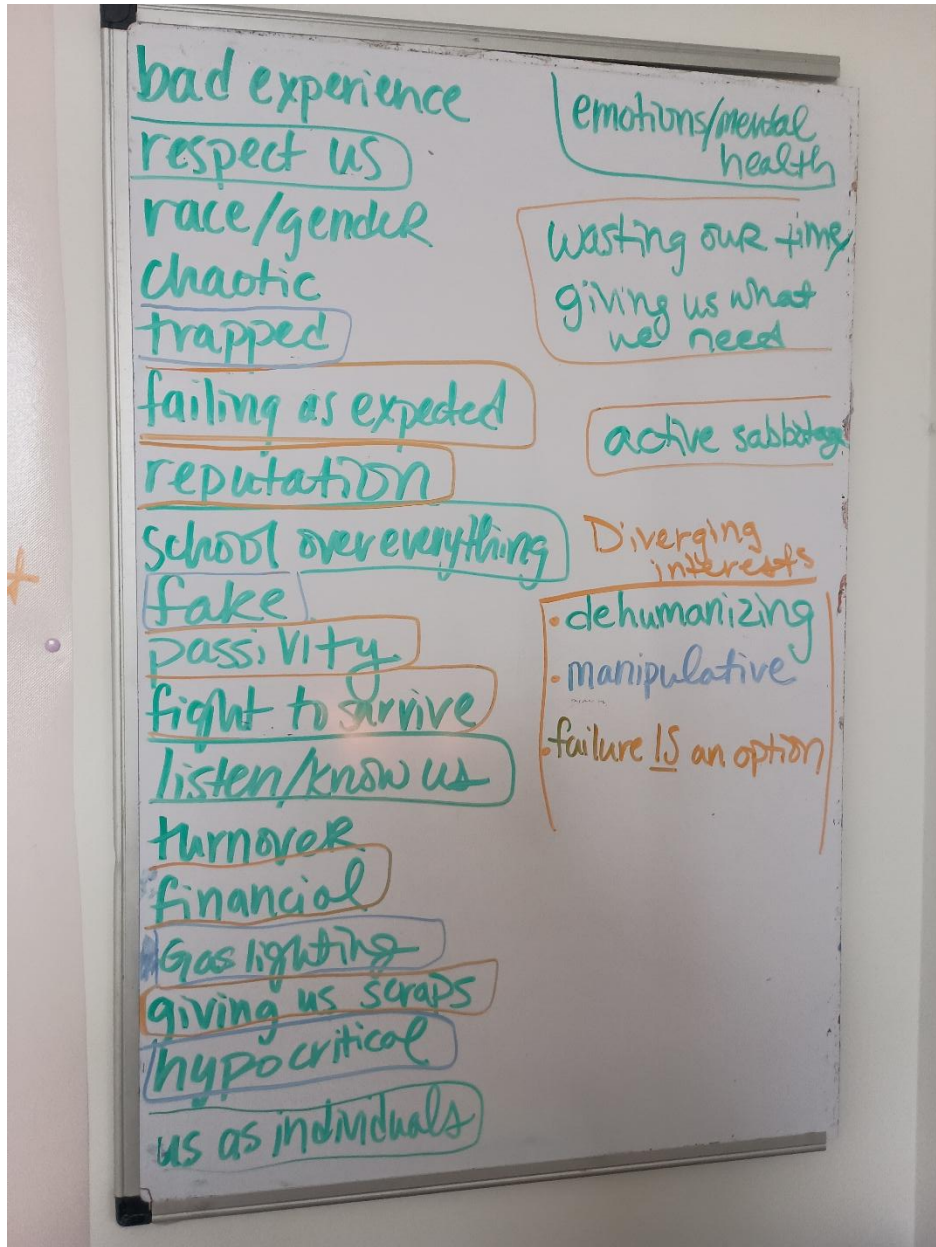 bad experience
respect us
race/gender
chaotic
trapped
failing as expected
reputation
school over everything
fake
passivity
fight to survive
listen/know us
turnover
financial
Gaslighting
giving us scraps
hypocritical
us as individuals
emotions/mental
health
wasting our time
giving us what
we need
active sabbotage
Diverging
interests
• dehumanizing
• manipulative
• failure IS an option